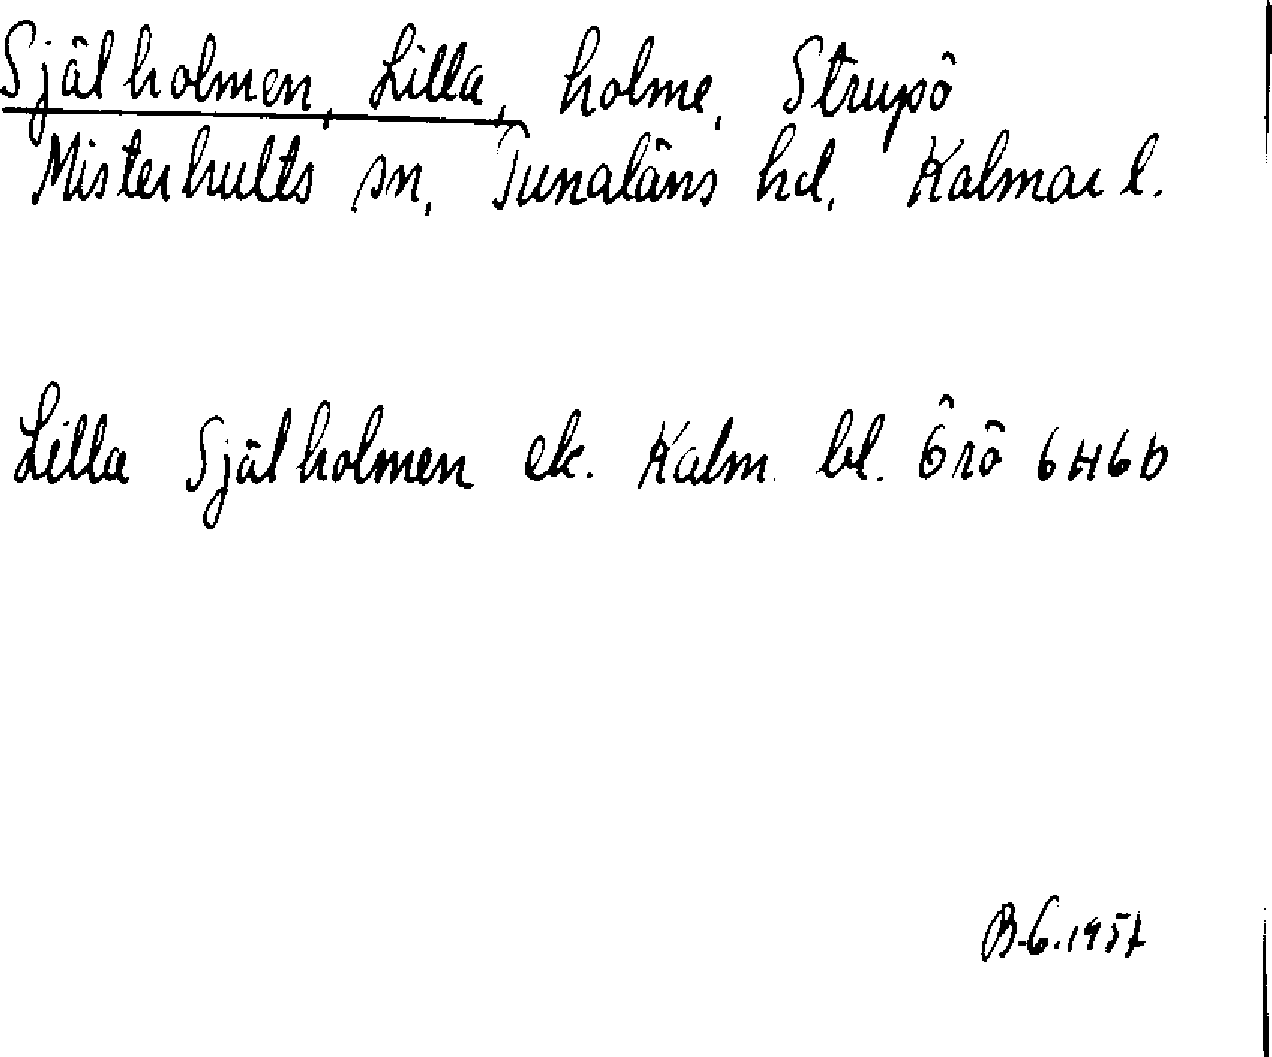 Själholmen, Lilla, holme, Strupö
Misterhults sn, Tunaläns hd, Kalmar l.
Lilla Själholmen ek. Kalm. bl. Örö 6H6b
B-G. 1957